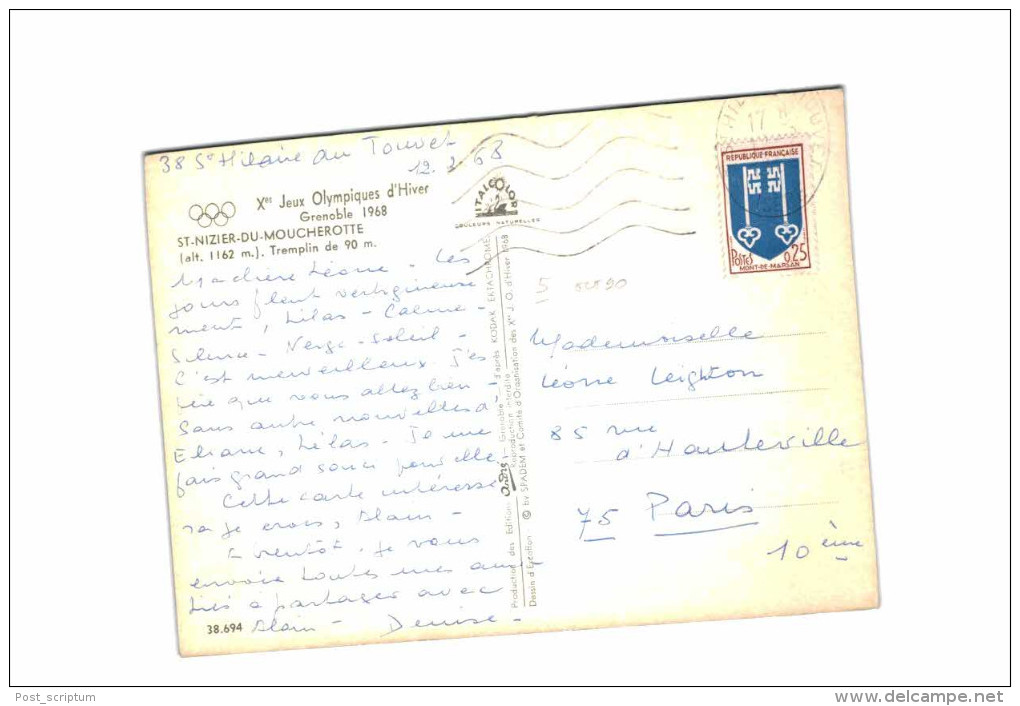 38 St Hilaire du Touvet
12. 2 68
Xes Jeux Olympiques d'Hiver
Grenoble 1968
ST-NIZIER-DU-MOUCHEROTTE
(alt. 1162 m.). Tremplin de 90 m.
Ma chère Léone - Les
jours filent vertigineuse
ment, hélas - Calme -
Silence - Neige - soleil -
C'est merveilleux. J'es
père que vous allez bien -
Sans autre nouvelles d'
Eliane, hélas - Je me
fais grand souci pour elle
Cette carte intéresse
ra je crois, Alain -
A bientôt. Je vous
envoie toutes mes ami
tiés à partager avec
Alain - Denise -
38.694
ITALCOLOR
COULEURS NATURELLES
Production des Editions André - Grenoble - d'après KODAK EKTACHROME
Reproduction interdite
© by SPADEM et Comité d'Organisation des Xes J. O. d'Hiver 1968
17 H
REPUBLIQUE FRANÇAISE
POSTES 0,25
MONT-DE-MARSAN
5
Mademoiselle
Léone Leighton
85 rue
d'Hauteville
75 Paris
10 ème
Post_scriptum
www.delcampe.net